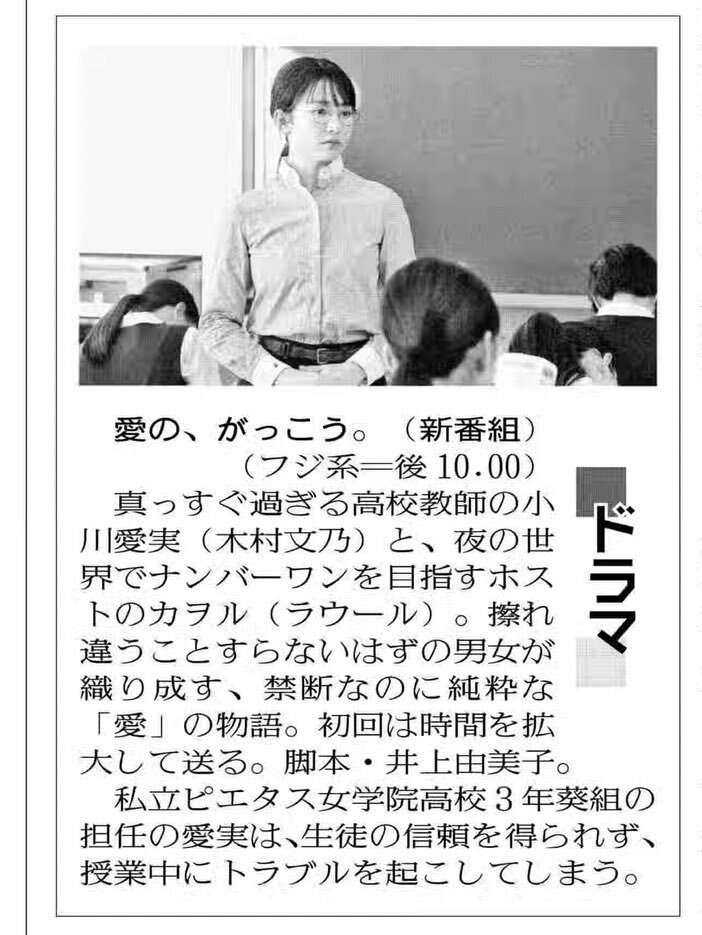 愛の、がっこう。（新番組）
（フジ系＝後10.00）
真っすぐ過ぎる高校教師の小
川愛実（木村文乃）と、夜の世
界でナンバーワンを目指すホス
トのカヲル（ラウール）。擦れ
違うことすらないはずの男女が
織り成す、禁断なのに純粋な
「愛」の物語。初回は時間を拡
大して送る。脚本・井上由美子。
私立ピエタス女学院高校３年葵組の
担任の愛実は、生徒の信頼を得られず、
授業中にトラブルを起こしてしまう。
ドラマ